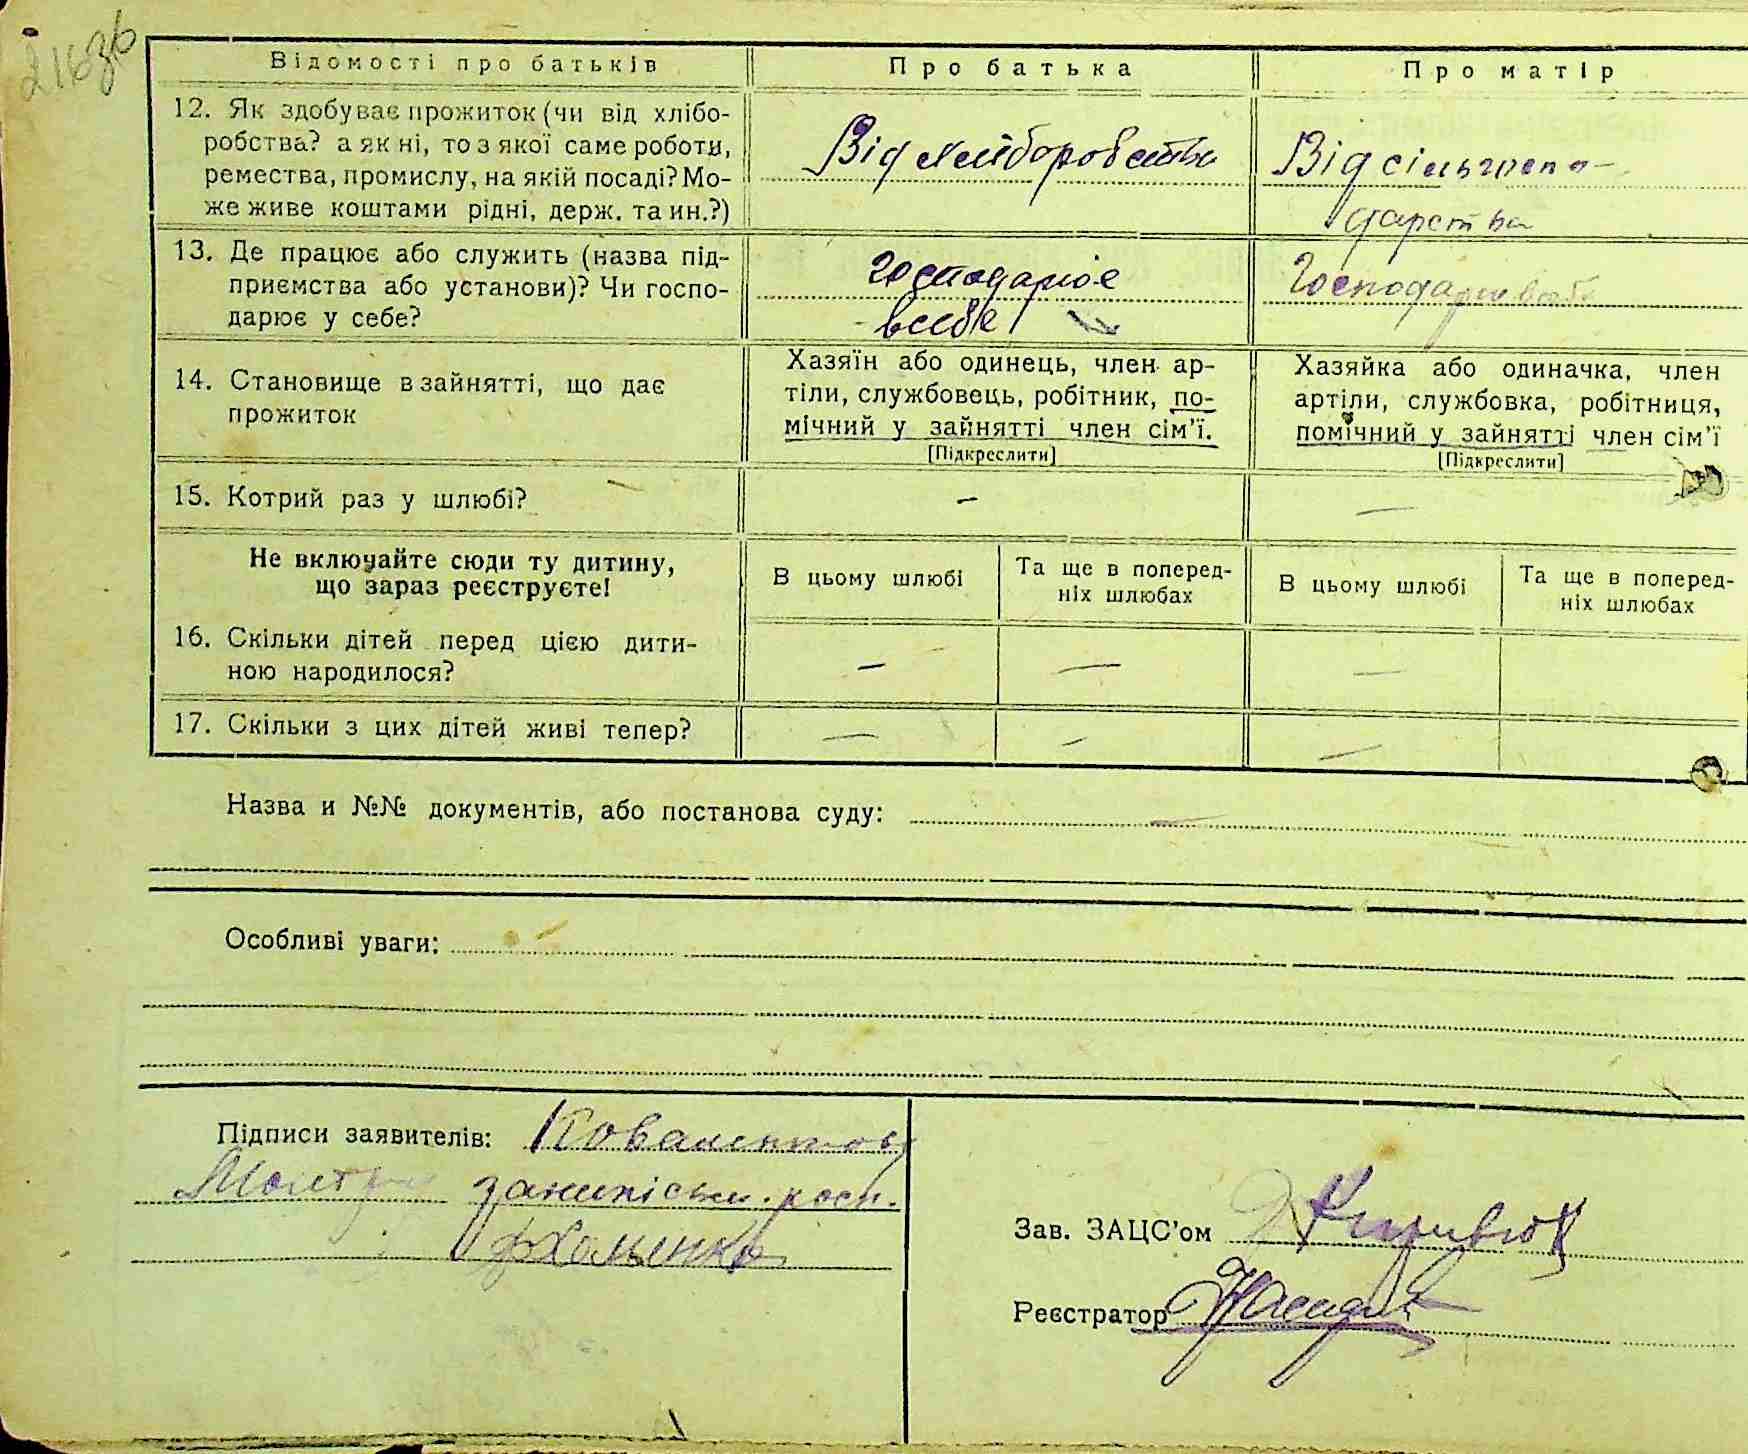 216зв
Відомості про батьків
Про батька
Про матір
12. Як здобуває прожиток (чи від хлібо-
робства? а як ні, то з якої саме роботи,
ремества, промислу, на якій посаді? Мо-
же живе коштами рідні, держ. та ин.?)
Від хліборобства
Від сільгоспо-
дарства
13. Де працює або служить (назва під-
приємства або установи)? Чи госпо-
дарює у себе?
Господарює
в себе
Господарює
14. Становище в зайнятті, що дає
прожиток
Хазяїн або одинець, член ар-
тіли, службовець, робітник, по-
мічний у зайнятті член сім’ї.
[Підкреслити]
Хазяйка або одиначка, член
артіли, службовка, робітниця,
помічний у зайнятті член сім’ї
[Підкреслити]
15. Котрий раз у шлюбі?
—
—
Не включайте сюди ту дитину,
що зараз реєструєте!
В цьому шлюбі
Та ще в поперед-
ніх шлюбах
В цьому шлюбі
Та ще в поперед-
ніх шлюбах
16. Скільки дітей перед цією дити-
ною народилося?
— — —
17. Скільки з цих дітей живі тепер?
— — —
Назва и №№ документів, або постанова суду: —
Особливі уваги:
Підписи заявителів:
Зав. ЗАЦС’ом
Реєстратор